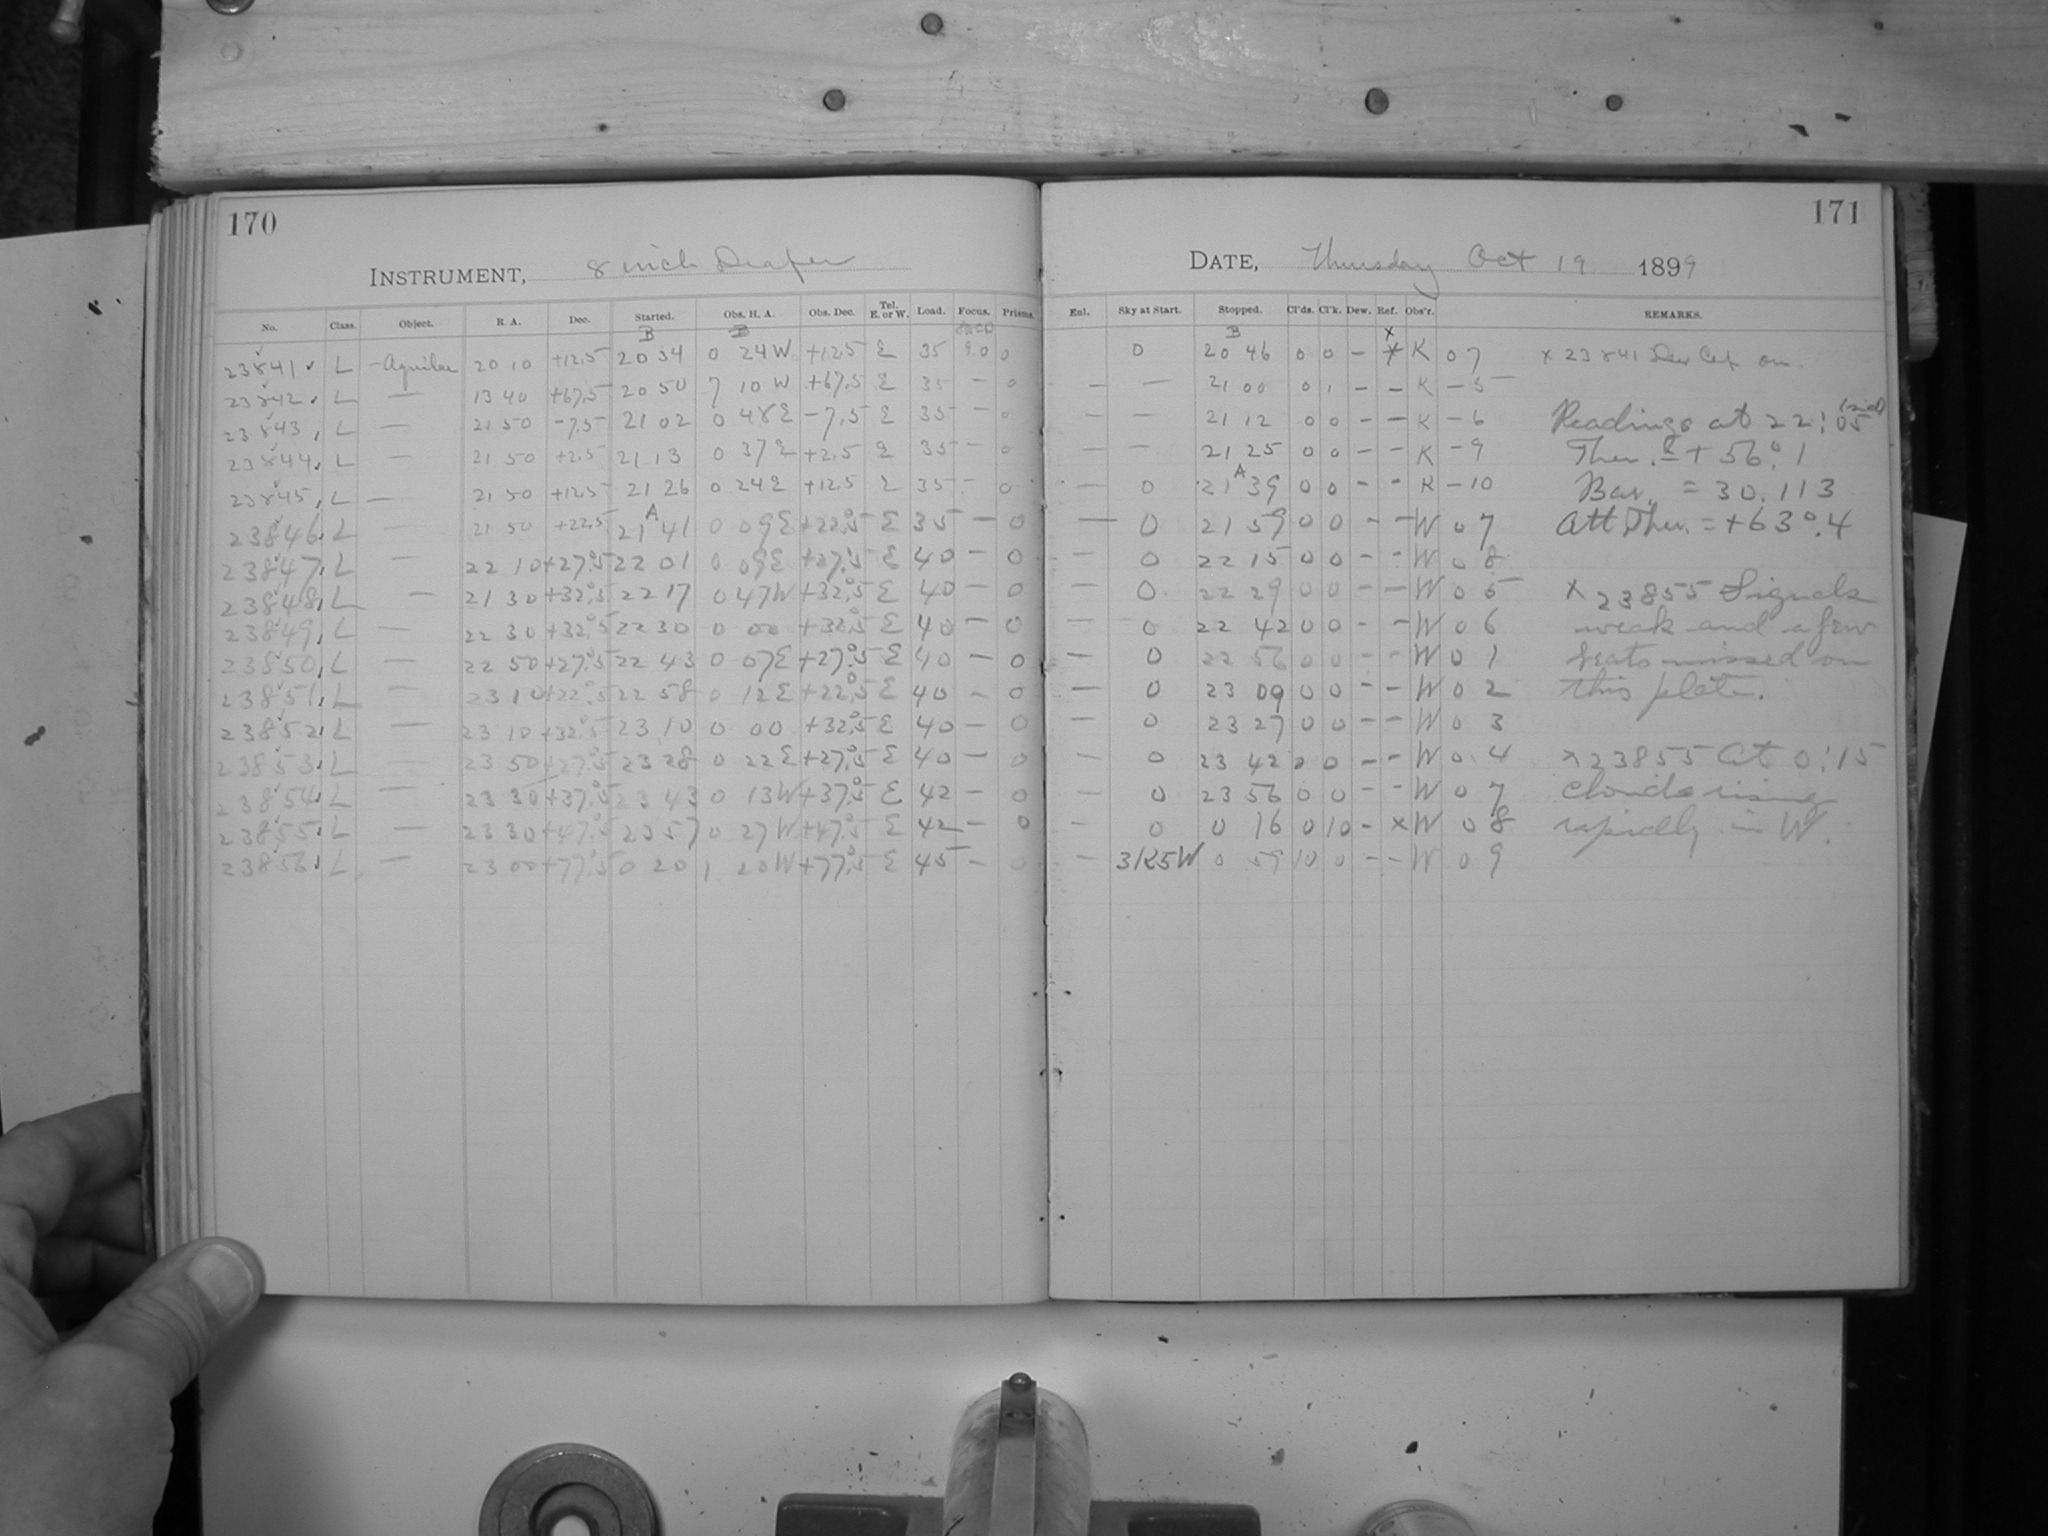 170
INSTRUMENT, 8 inch Draper
No. Class. Object. R. A. Dec. Started. Obs. H. A. Obs. Dec. Tel. E. or W. Load. Focus. Prisms.
B B
23841 L - Aquilae 20 10 +12.5 20 34 0 24 W +12.5 E 35 9.0 0
23842 L — 13 40 +67.5 20 50 7 10 W +67.5 E 35 - 0
23843 L — 21 50 -7.5 21 02 0 48 E -7.5 E 35 - 0
23844 L — 21 50 +2.5 21 13 0 37 E +2.5 E 35 - 0
23845 L — 21 50 +12.5 21 26 0 24 E +12.5 E 35 - 0
A
23846 L — 21 50 +22.5 21 41 0 09 E +22°.5 E 35 - 0
23847 L — 22 10 +27°.5 22 01 0 09 E +27°.5 E 40 - 0
23848 L — 21 30 +32°.5 22 17 0 47 W +32°.5 E 40 - 0
23849 L — 22 30 +32°.5 22 30 0 00 +32°.5 E 40 - 0
23850 L — 22 50 +27°.5 22 43 0 07 E +27°.5 E 40 - 0
23851 L — 23 10 +22°.5 22 58 0 12 E +22°.5 E 40 - 0
23852 L — 23 10 +32°.5 23 10 0 00 +32°.5 E 40 - 0
23853 L — 23 50 +27°.5 23 28 0 22 E +27°.5 E 40 - 0
23854 L — 23 30 +37°.5 23 43 0 13 W +37°.5 E 42 - 0
23855 L — 23 30 +47°.5 23 57 0 27 W +47°.5 E 42 - 0
23856 L — 23 00 +77°.5 0 20 1 20 W +77°.5 E 45 - 0
171
DATE, Thursday Oct 19 1899
Enl. Sky at Start. Stopped. Cl'ds. Cl'k. Dew. Ref. Obs'r. REMARKS.
B x
0 20 46 0 0 - x K 0 7 x 23841 Dew Cap on.
— — 21 00 0 1 - - K - 5
— — 21 12 0 0 - - K - 6 Readings at 22:05 (sid)
— — 21 25 0 0 - - K - 9 Ther. = + 56°.1
A
0 21 39 0 0 - - K - 10 Bar. = 30.113
— 0 21 59 0 0 - - W 0 7 Att Ther. = +63°.4
— 0 22 15 0 0 - - W 0 8
— 0 22 29 0 0 - - W 0 5 x 23855 Signals
— 0 22 42 0 0 - - W 0 6 weak and a few
— 0 22 56 0 0 - - W 0 1 beats missed on
— 0 23 09 0 0 - - W 0 2 this plate.
— 0 23 27 0 0 - - W 0 3
— 0 23 42 0 0 - - W 0 4 x 23855 At 0:15
— 0 23 56 0 0 - - W 0 7 clouds rising
— 0 0 16 0 10 - x W 0 8 rapidly in W.
— 3K5W 0 59 10 0 - - W 0 9